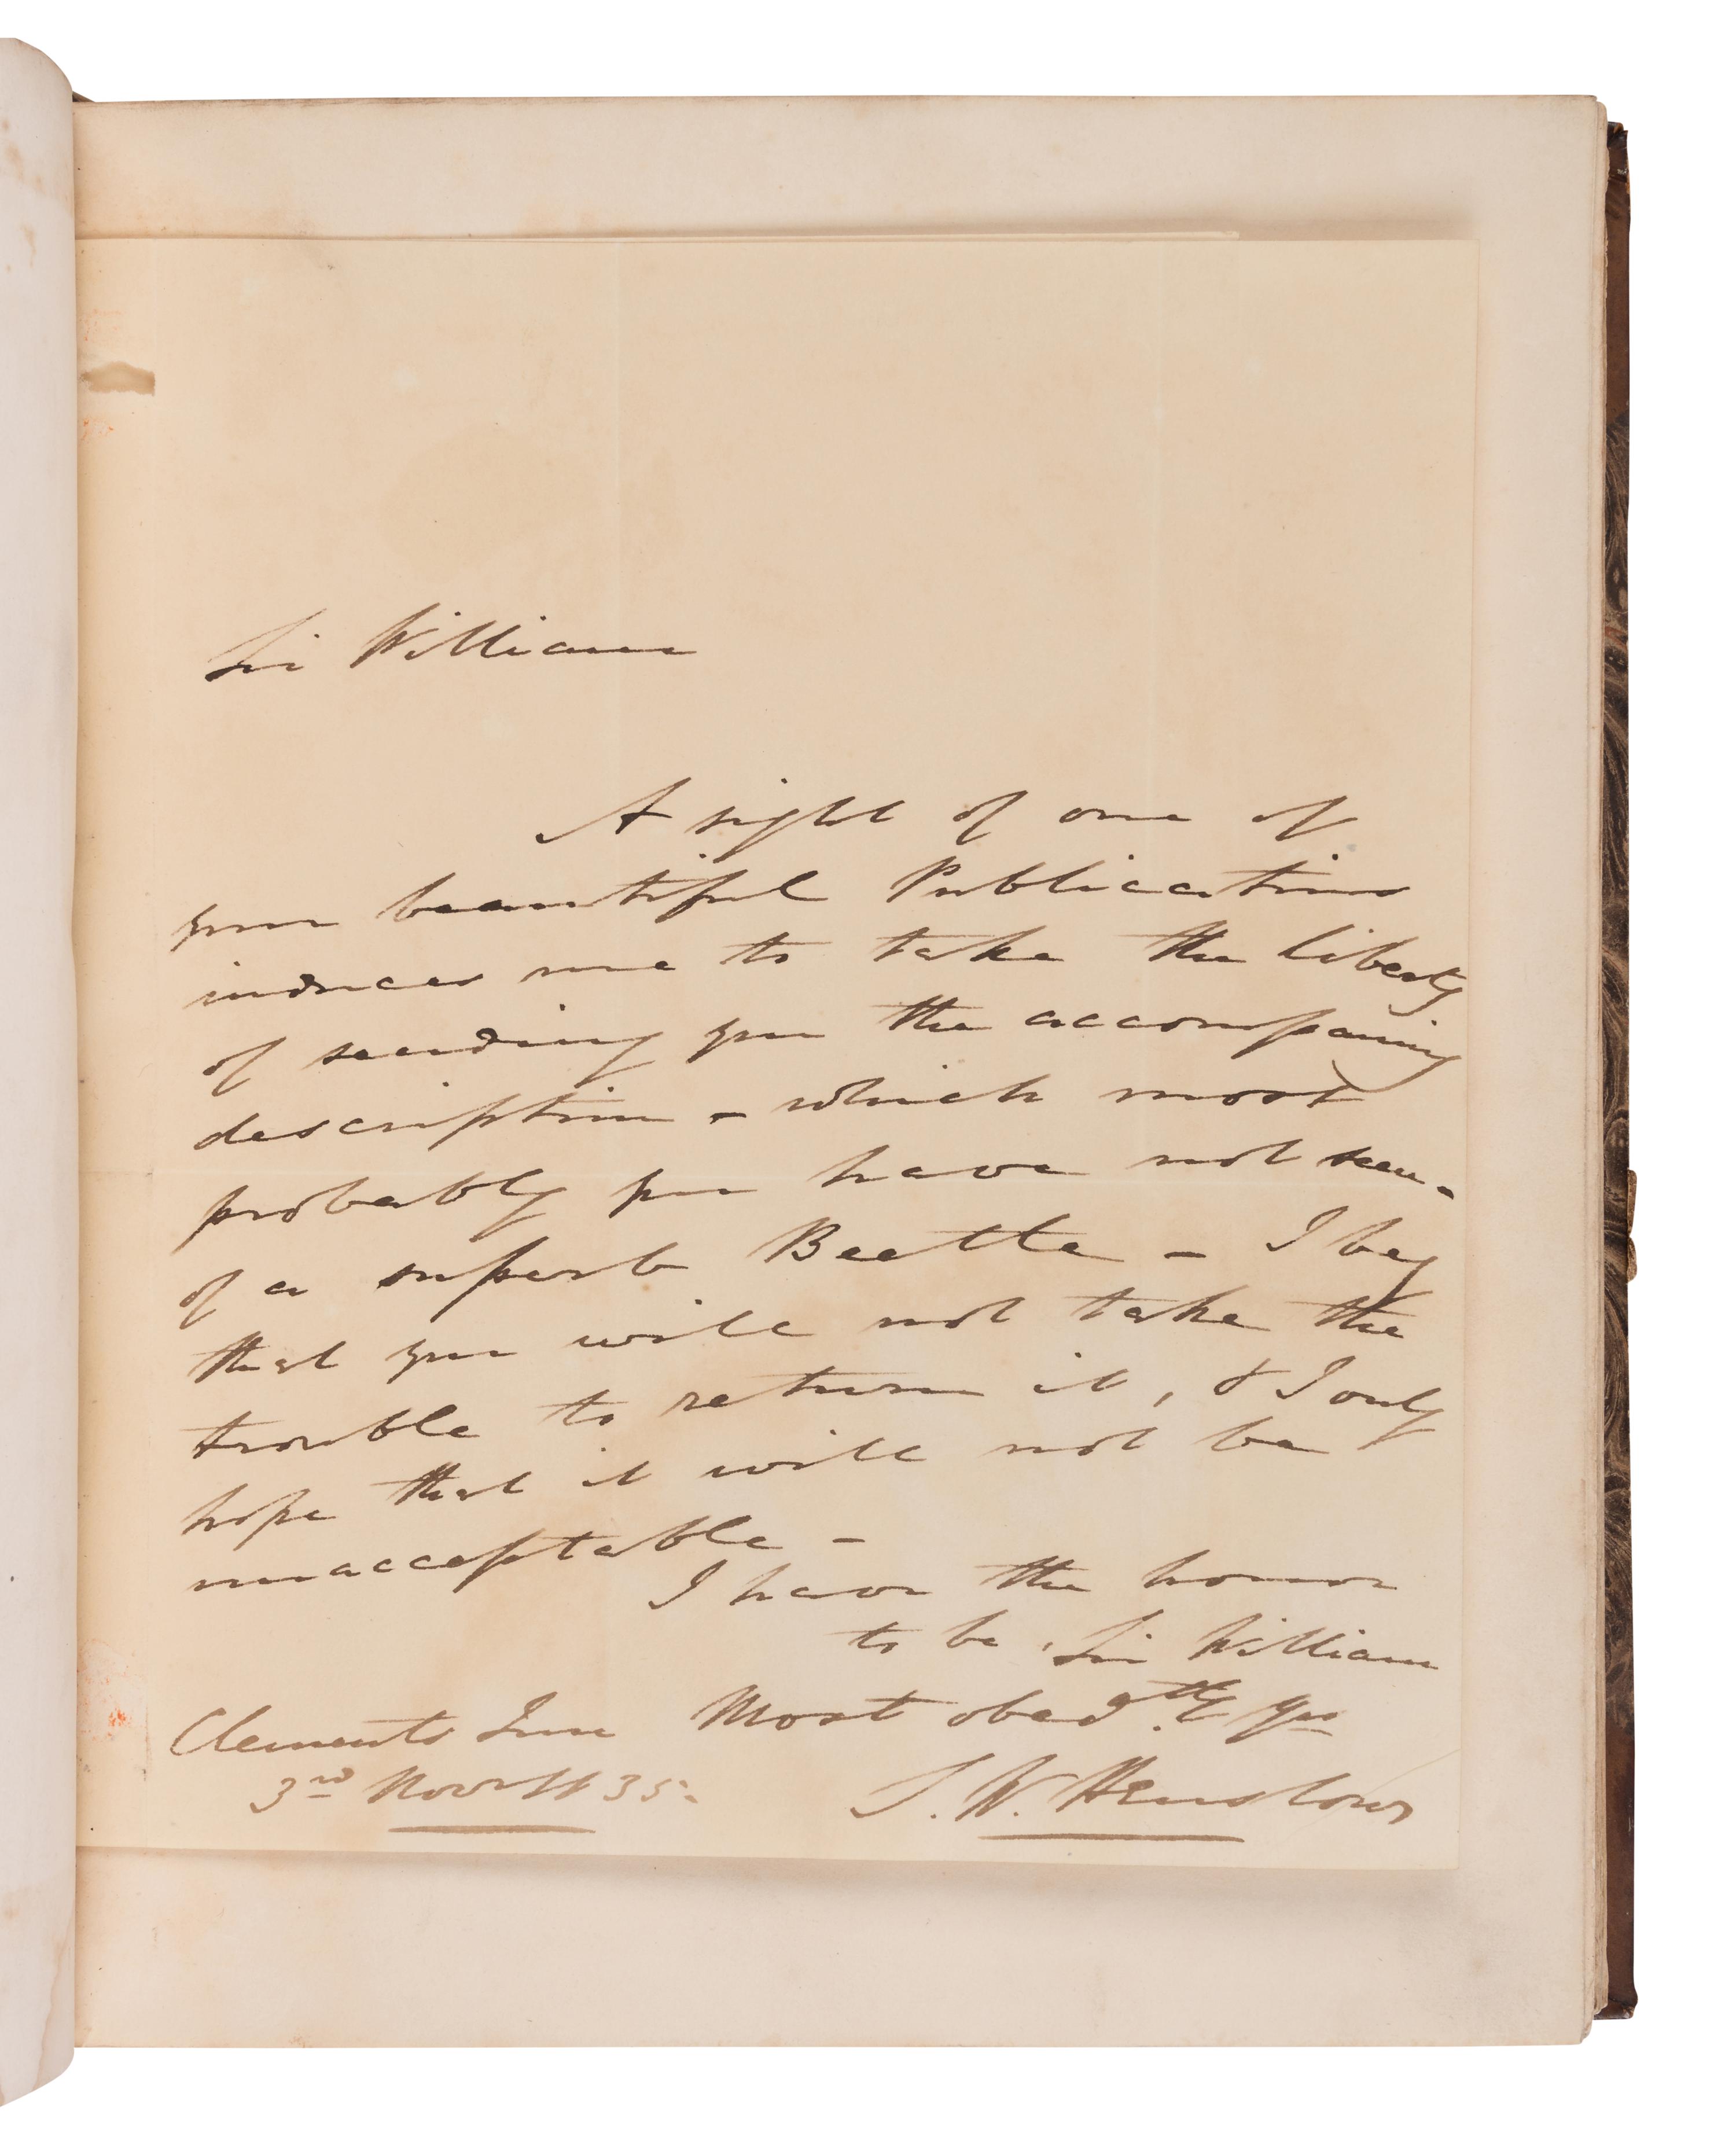 Sir William
A sight of one of
your beautiful Publications
induces me to take the liberty
of sending you the accompaning
description - which most
probably you have not seen -
of a superb Beetle - I beg
that you will not take the
trouble to return it, & I only
hope that it will not be
unacceptable -
I have the honor
to be, Sir William
Most obed.tly yrs
Clements Inn
3rd Novr 35:
J. W. Henslow